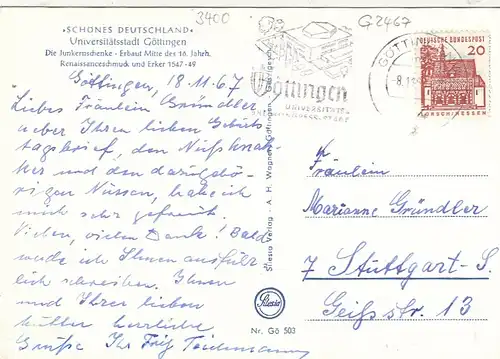 3400
G 2467
·SCHÖNES DEUTSCHLAND·
Universitätsstadt Göttingen
Die Junkernschenke - Erbaut Mitte des 16. Jahrh.
Renaissanceschmuck und Erker 1547-49
Göttingen, 18.11.67
Liebes Fräulein Gründler,
ueber Ihren lieben Geburts
tagsbrief, den Nußknak-
ker und den dazugehö-
rigen Nüssen, habe ich
mich sehr gefreut.
Vielen, vielen Dank! Bald
werde ich Ihnen ausführ
lich schreiben. Ihnen
und Ihrer lieben
Mutter herzliche
Grüße Ihr Fritz
Silesia Verlag - A. H. Wagner, Göttingen
Silesia
Nr. Gö 503
Göttingen
UNIVERSITÄTS-
GÖTTINGEN
DEUTSCHE BUNDESPOST
20
LORSCH/HESSEN
Fräulein
Marianne Gründler
7 Stuttgart-S.
Geißstr. 13